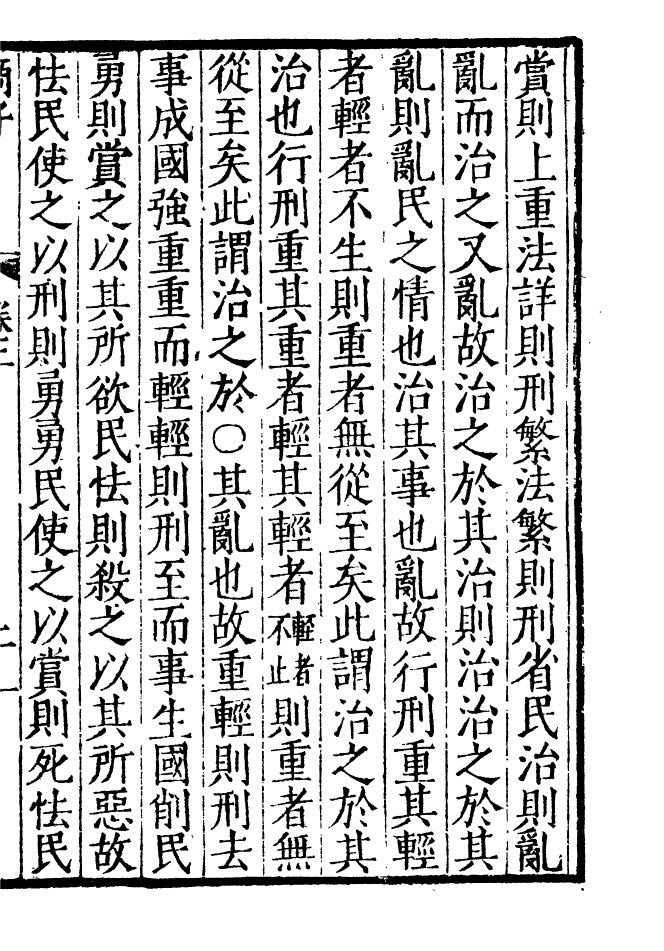 賞則上重法詳則刑繁法繁則刑省民治則亂
亂而治之又亂故治之於其治則治治之於其
亂則亂民之情也治其事也亂故行刑重其輕
者輕者不生則重者無從至矣此謂治之於其
治也行刑重其重者輕其輕者輕者不止則重者無
從至矣此謂治之於○其亂也故重輕則刑去
事成國強重重而輕輕則刑至而事生國削民
勇則賞之以其所欲民怯則殺之以其所惡故
怯民使之以刑則勇勇民使之以賞則死怯民
商子 卷三